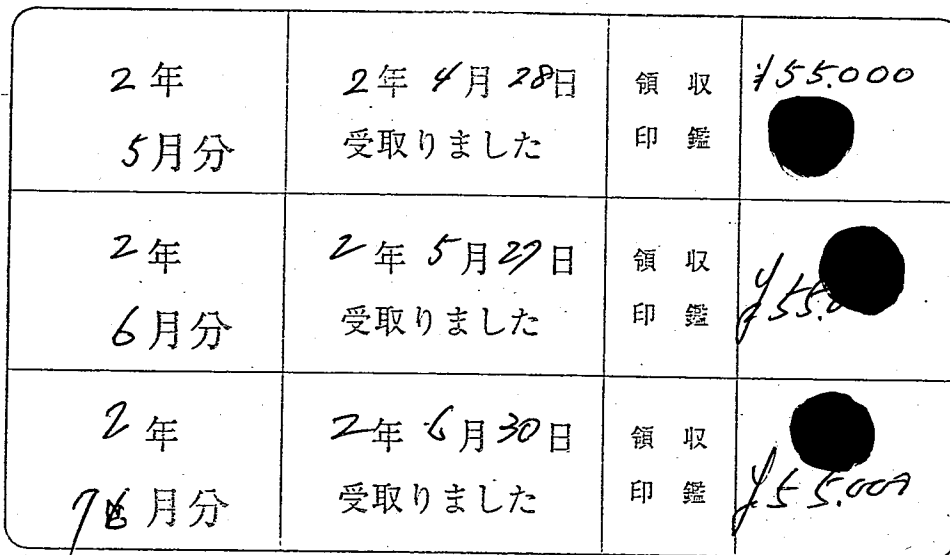 2年
5月分
2年 4月 28日
受取りました
領収
印鑑
¥55.000
2年
6月分
2年 5月 29日
受取りました
領収
印鑑
¥55.0
2年
7月分
2年 6月 30日
受取りました
領収
印鑑
¥55.000